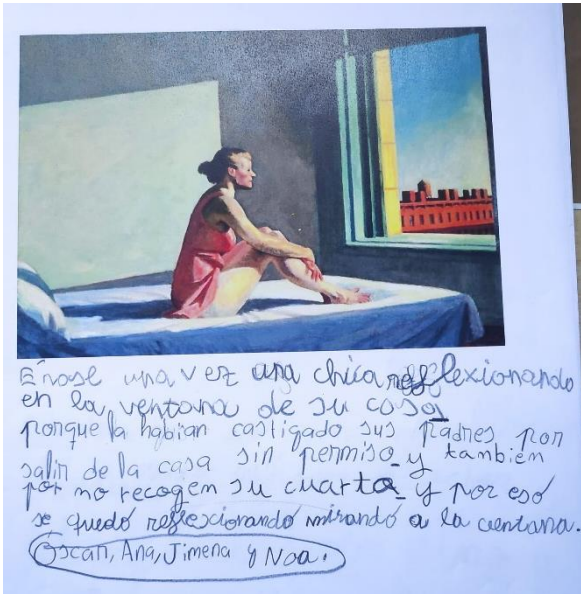 Érase una vez una chica reflexionando
en la ventana de su casa
porque la habian castigado sus padres por
salir de la casa sin permiso y también
por no recogen su cuarto y por eso
se quedó reflescionando mirandó a la ventana.
Óscar, Ana, Jimena y Noa.